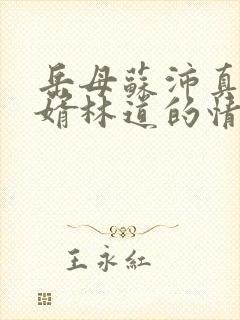 岳母蘇沛真
婿林道的情
王永紅